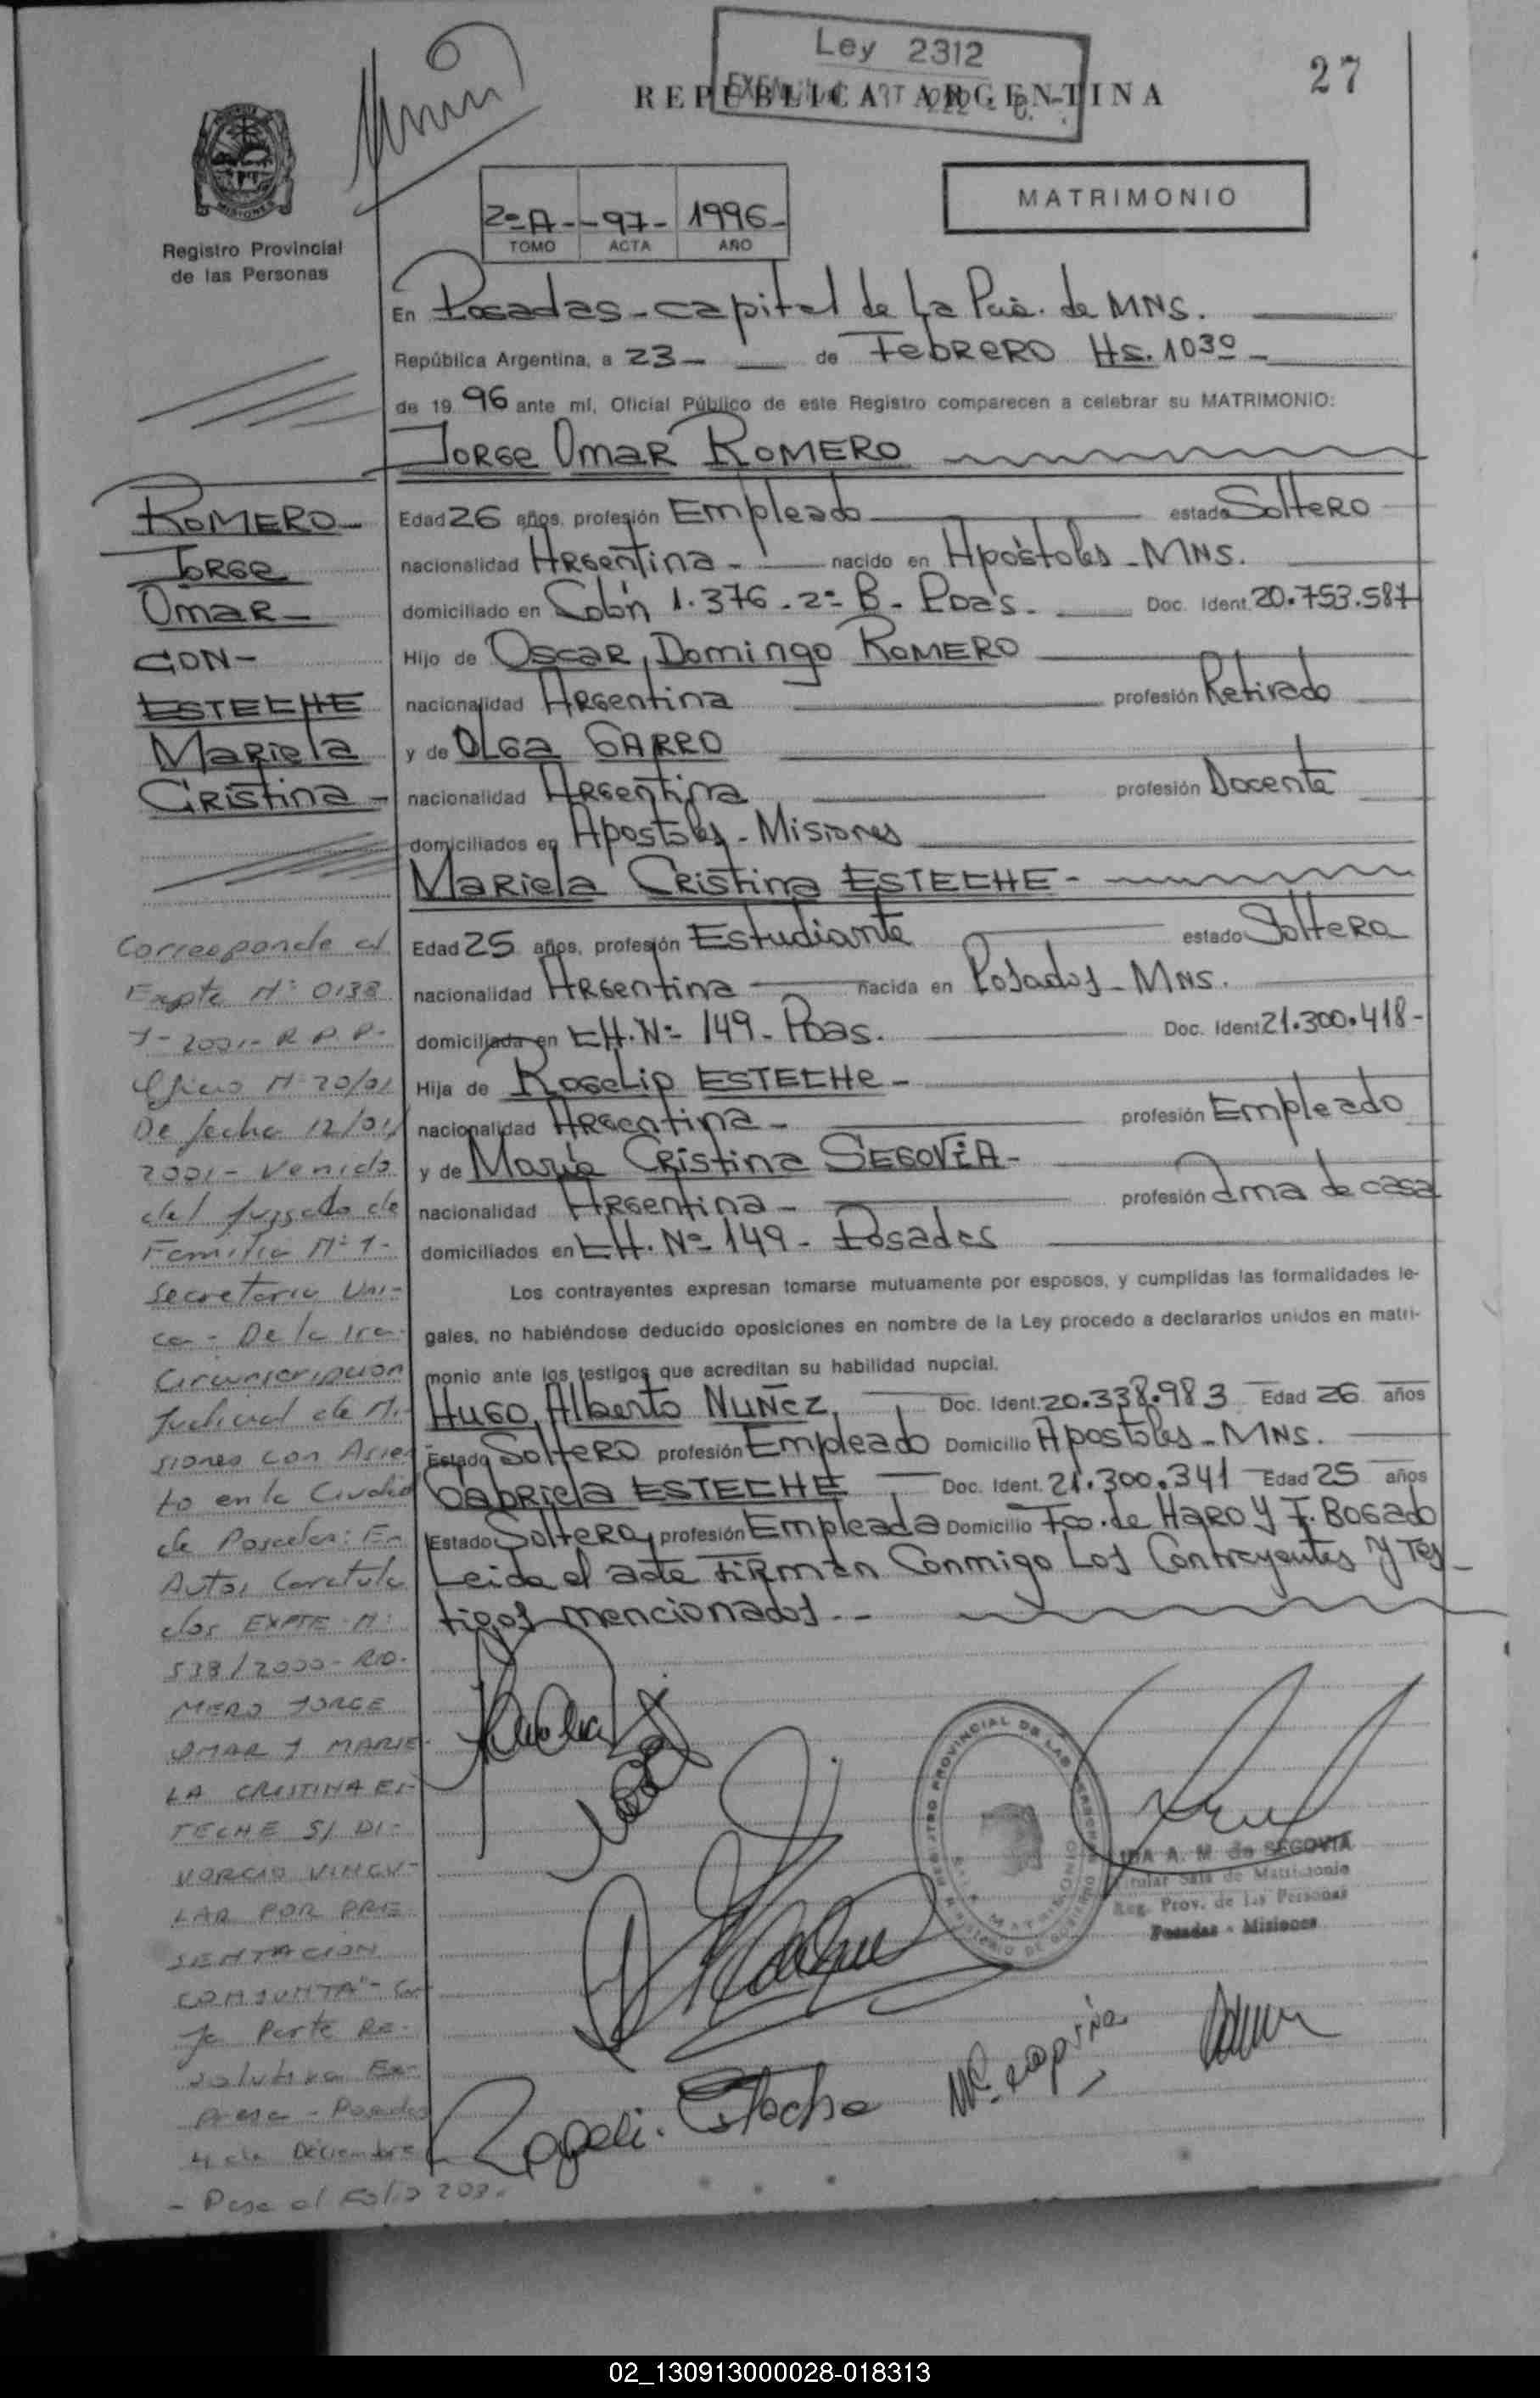 Ley 2312
REPUBLICA ARGENTINA
27
MATRIMONIO
2º A - - 97 - 1996 -
TOMO ACTA AÑO
MISIONES
Registro Provincial
de las Personas
En Posadas - capital de La Pcia. de MNS.
República Argentina, a 23 - de Febrero Hs. 10³⁰ -
de 19 96 ante mí, Oficial Público de este Registro comparecen a celebrar su MATRIMONIO:
Jorge Omar ROMERO
Edad 26 años, profesión Empleado estado Soltero
nacionalidad Argentina - nacido en Apóstoles - MNS.
domiciliado en Colón 1.376 - 2º B - Pdas. Doc. Ident. 20.753.587
Hijo de Oscar Domingo ROMERO
nacionalidad Argentina profesión Retirado
y de OLGA GARRO
nacionalidad Argentina profesión Docente
domiciliados en Apostoles - Misiones
Mariela Cristina ESTECHE -
Edad 25 años, profesión Estudiante estado Soltera
nacionalidad Argentina nacida en Posadas - MNS.
domiciliada en CH. Nº 149 - Pdas. Doc. Ident. 21.300.418 -
Hija de Rogelio ESTECHE -
nacionalidad Argentina - profesión Empleado
y de María Cristina SEGOVIA -
nacionalidad Argentina - profesión Ama de casa
domiciliados en CH. Nº 149 - Posadas
Los contrayentes expresan tomarse mutuamente por esposos, y cumplidas las formalidades le-
gales, no habiéndose deducido oposiciones en nombre de la Ley procedo a declararlos unidos en matri-
monio ante los testigos que acreditan su habilidad nupcial.
Hugo Alberto NUÑEZ, Doc. Ident. 20.338.983 Edad 26 años
Estado Soltero profesión Empleado Domicilio Apostoles - MNS.
Gabriela ESTECHE Doc. Ident. 21.300.341 Edad 25 años
Estado Soltera, profesión Empleada Domicilio Fco. de Haro y F. Bogado
Leida el acta firman Conmigo Los Contrayentes y Tes-
tigos mencionados. -
ROMERO -
Jorge
Omar -
CON -
ESTECHE
Mariela
Cristina -
Corresponde al
Expte Nº 0138
1 - 2001 - R P P -
Oficio Nº 20/01
De fecha 12/01/
2001 - Venido
del Juzgado de
Familia Nº 1 -
Secretaria Uni-
ca - De la 1ra
Circunscripcion
Judicial de Mi-
siones con Asien
to en la Ciudad
de Posadas: En
Autos Caratula
dos EXPTE Nº
538/2000 - RO-
MERO JORGE
OMAR Y MARIE-
LA CRISTINA ES-
TECHE S/ DI-
VORCIO VINCU-
LAR POR PRE
SENTACION
CONJUNTA" - Cu-
ya Parte Re-
solutiva Ex-
presa - Posadas
4 de Diciembre
- Pasa al Folio 203 -
REGISTRO PROVINCIAL DE LAS PERSONAS
SALA MATRIMONIO
MINISTERIO DE GOBIERNO
IDA A. M. de SEGOVIA
Titular Sala de Matrimonio
Reg. Prov. de las Personas
Posadas - Misiones
Rogeli. Esteche
02_130913000028-018313